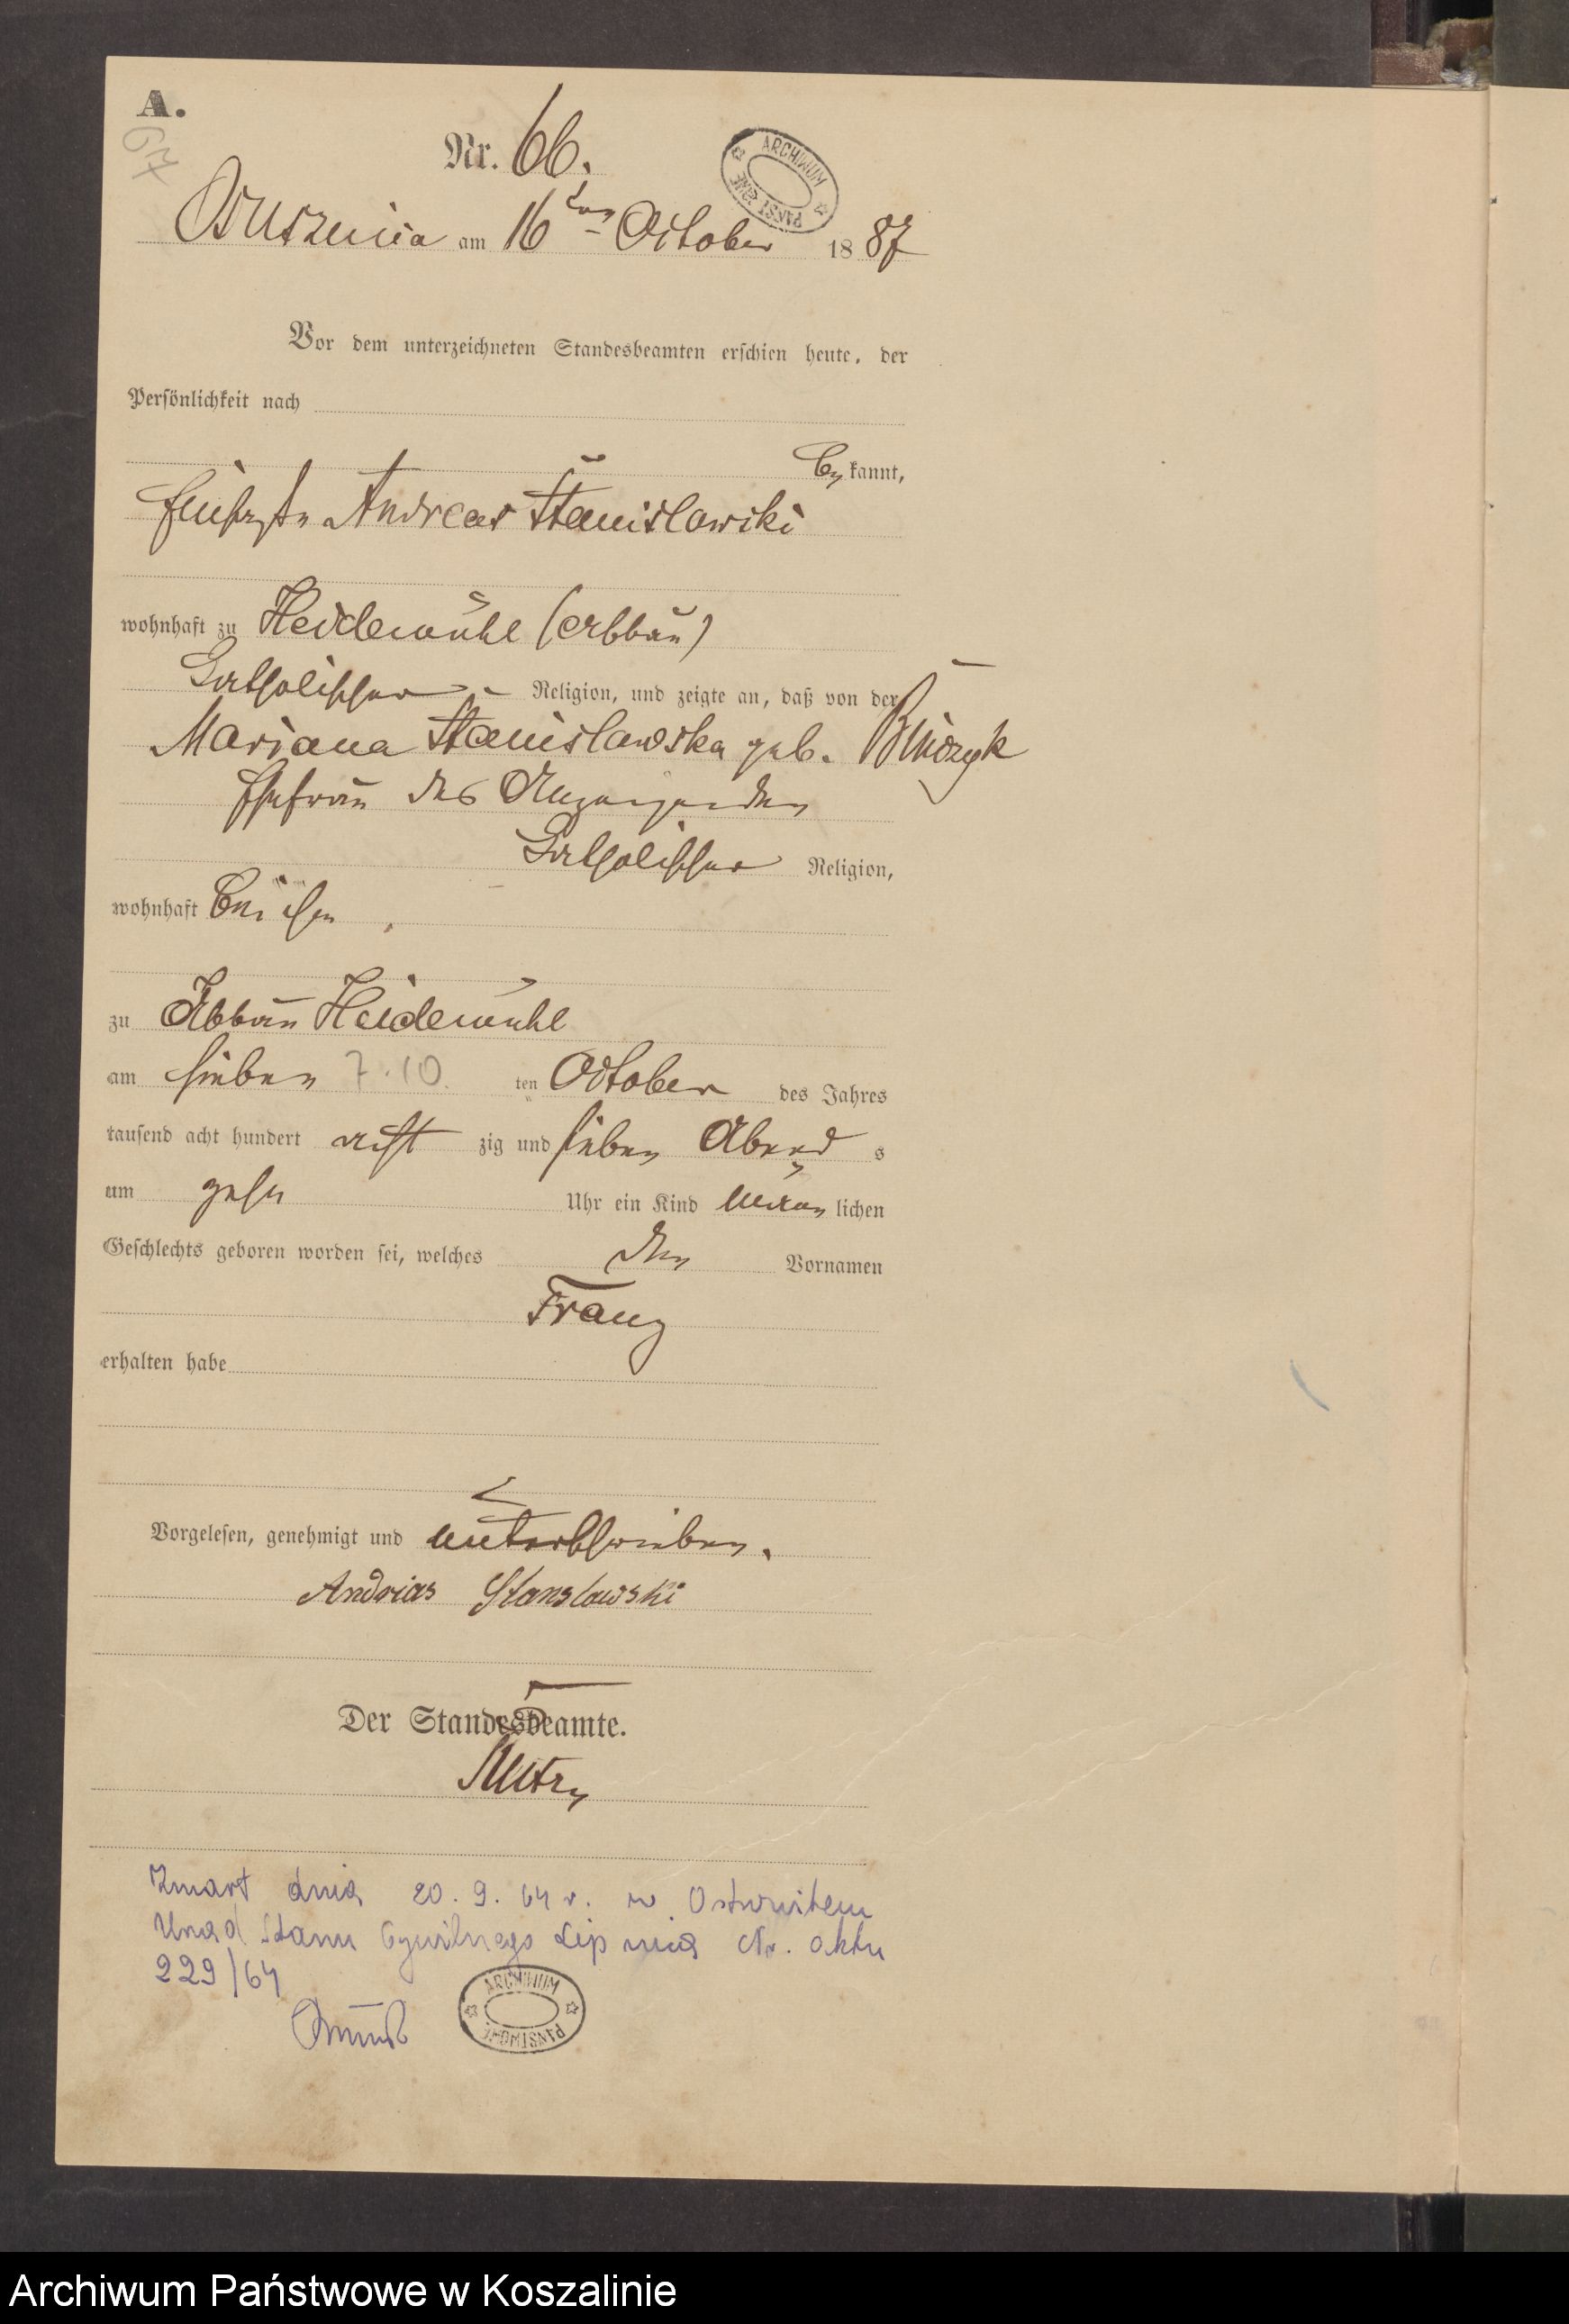 A.
67
Nr. 66.
ARCHIWUM PAŃSTWOWE
am 16ten October 1887
Vor dem unterzeichneten Standesbeamten erschien heute, der
Persönlichkeit nach
be kannt,
Andreas Stanislawski
wohnhaft zu Heidemühl (Abbau)
katholischer Religion, und zeigte an, daß von der
Mariana Stanislawska geb.
Ehefrau des Anzeigenden
katholischer Religion,
wohnhaft bei ihm
zu Abbau Heidemühl
am sieben 7.10. ten October des Jahres
tausend acht hundert acht zig und sieben Abend s
um zehn Uhr ein Kind männ lichen
Geschlechts geboren worden sei, welches den Vornamen
Franz
erhalten habe
Vorgelesen, genehmigt und unterschrieben.
Andrias Stanslawski
Der Standesbeamte.
Zmarł dnia 20.9.64 r. w Ostrowitem
Urząd Stanu Cywilnego Lipnica Nr. aktu
229/64
ARCHIWUM PAŃSTWOWE
Archiwum Państwowe w Koszalinie